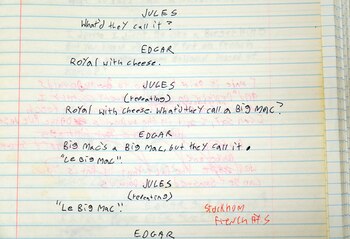 JULES
What'd they call it?
EDGAR
Royal with cheese.
JULES
(repeating)
Royal with cheese. What'd they call a Big Mac?
EDGAR
Big Mac's a Big Mac, but they call it
"Le Big Mac".
JULES
(repeating)
"Le Big Mac".
Stockhom
French
EDGAR